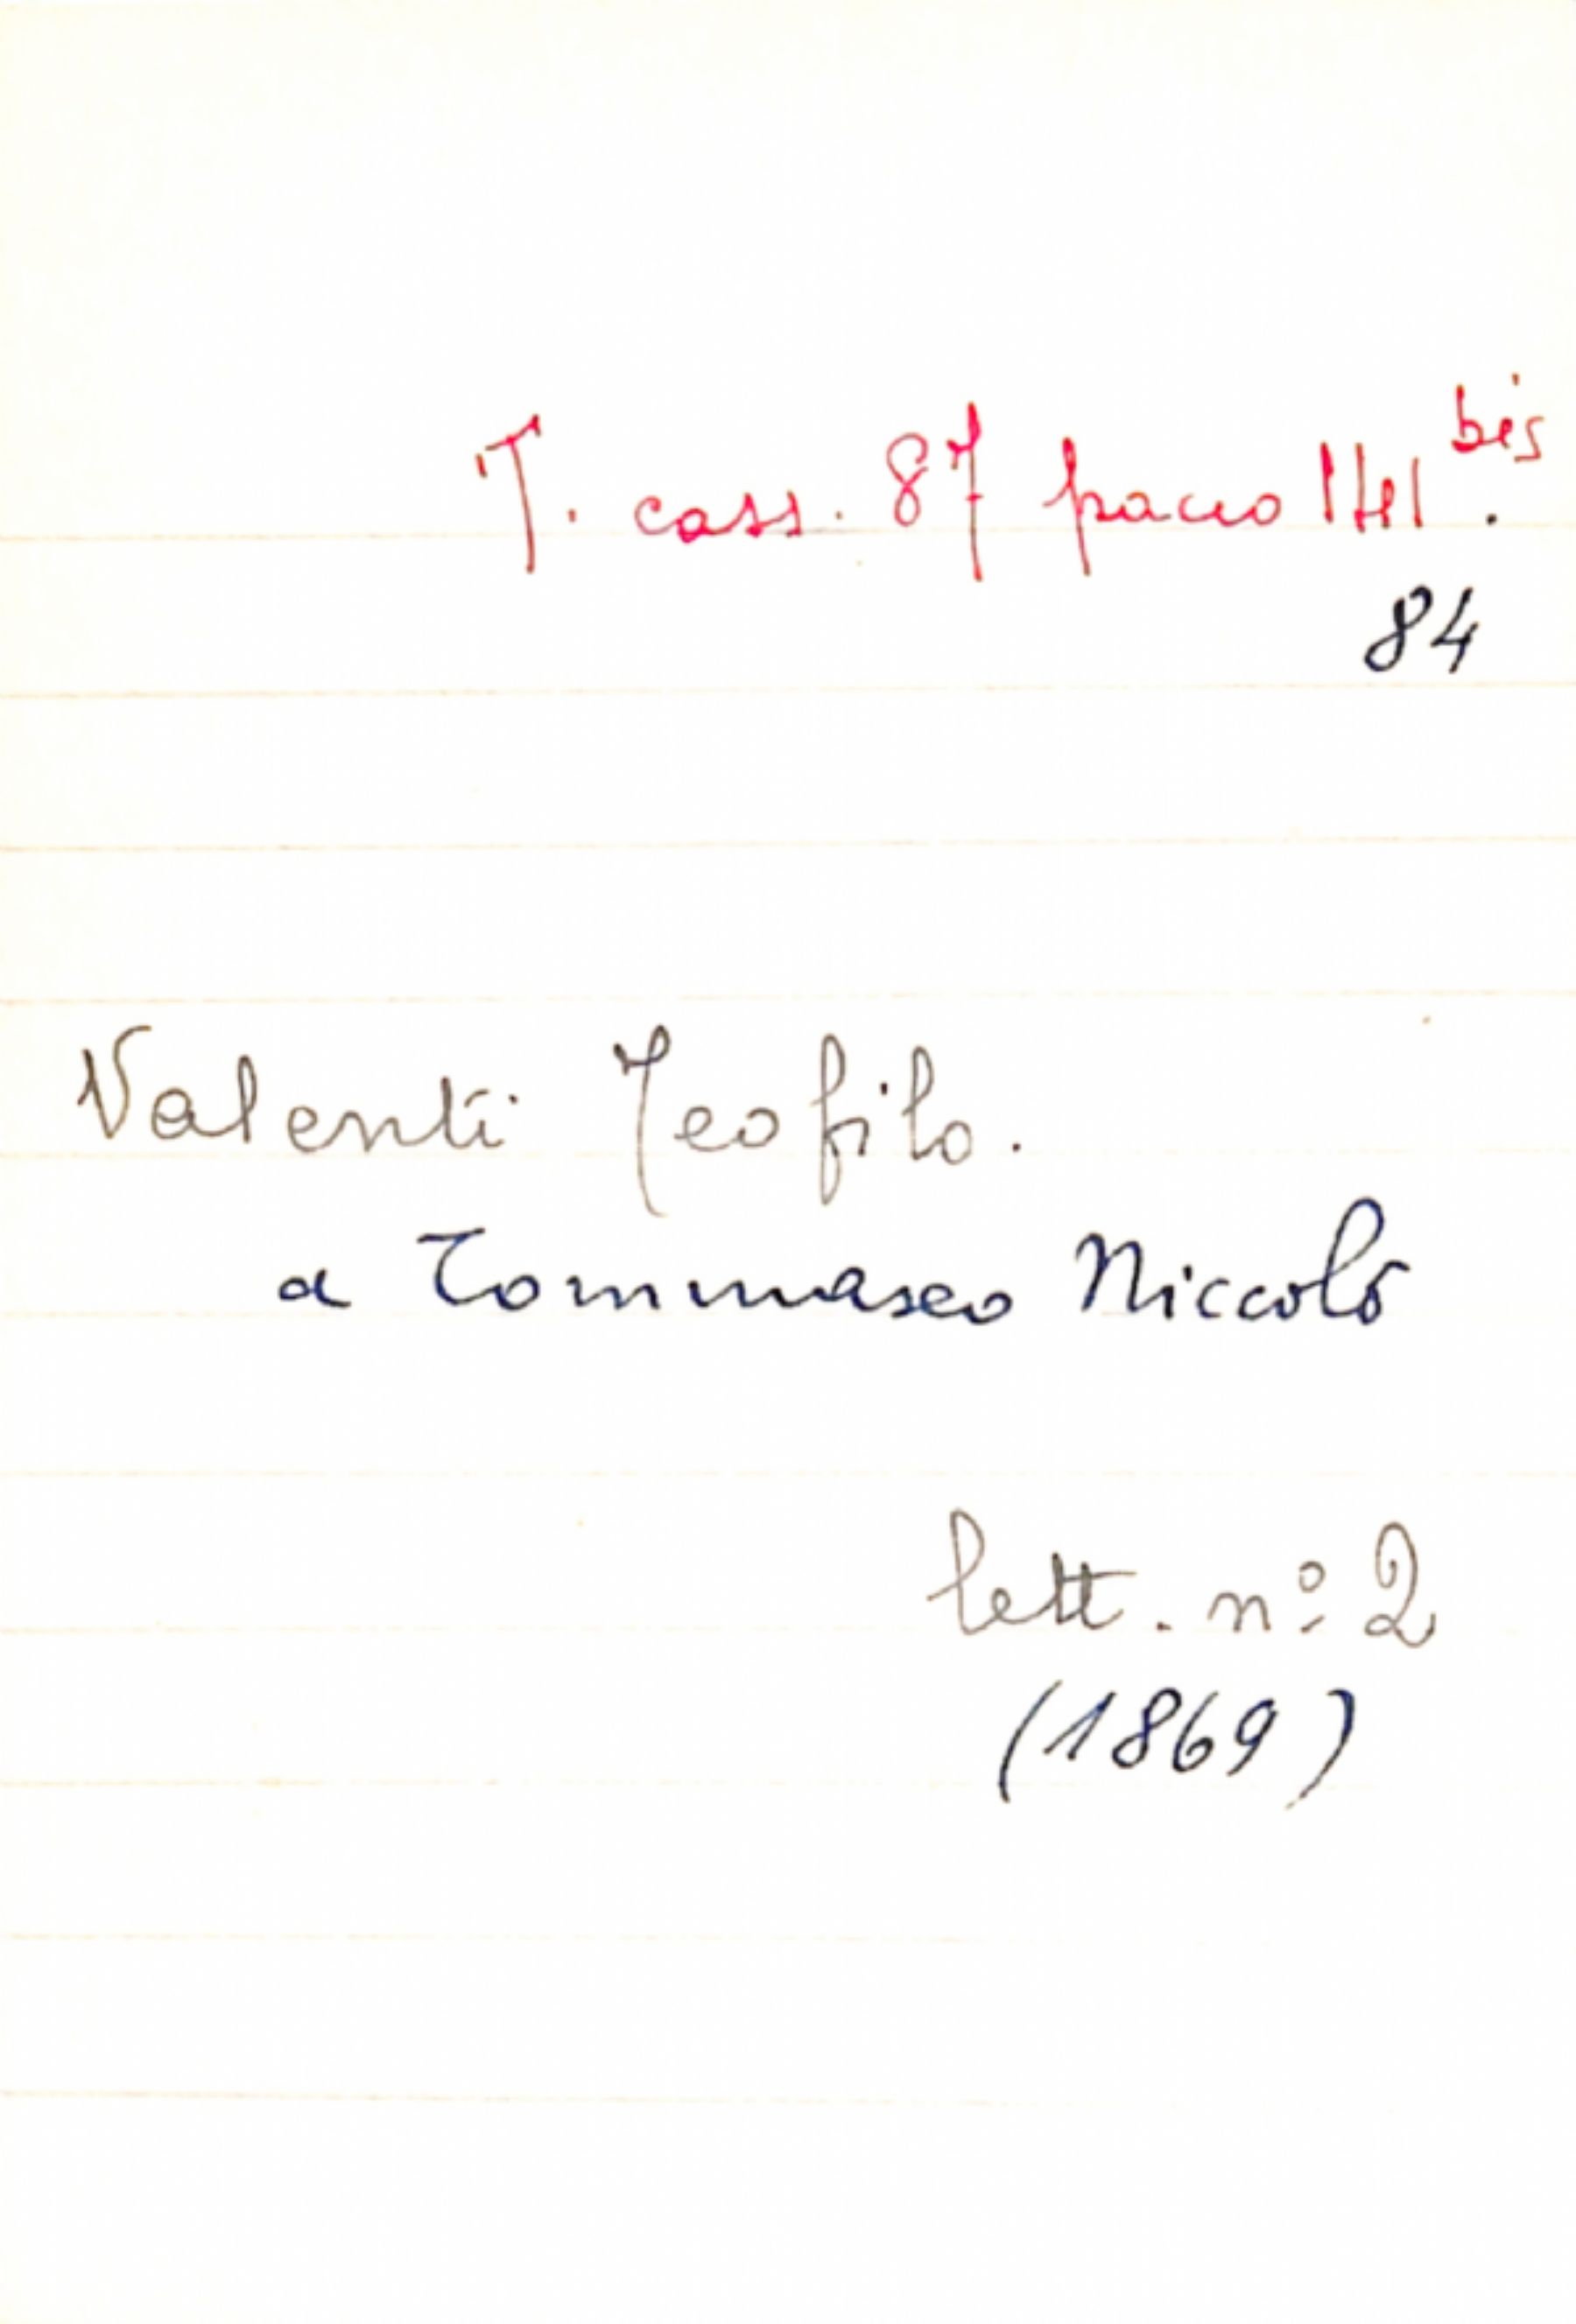 T. cass. 87 pacco 141 bis.
84
Valenti Teofilo.
a Tommaseo Niccolò
lett. nº 2
(1869)